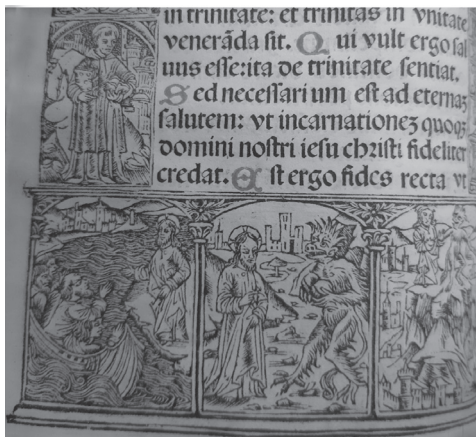 in trinitate: et trinitas in vnitate
venerãda sit. Qui vult ergo sal
uus esse: ita de trinitate sentiat.
Sed necessarium est ad eterna₂
salutem: vt incarnationeʒ quoqʒ
domini nostri iesu christi fideliter
credat. Est ergo fides recta vt